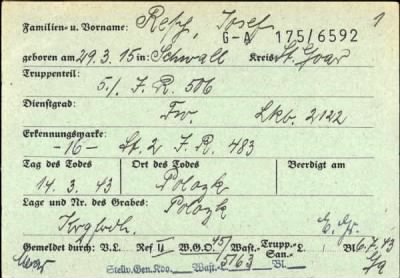 Familien- u. Vorname: Josef 1
G-A 175/6592
geboren am 29.3.15 in Schwall Kreis St. Goar
Truppenteil:
5./ J. R. 506
Dienstgrad:
Fw. Lkb. 2122
Erkennungsmarke:
-16- St. 2 J. R. 483
Tag des Todes Ort des Todes Beerdigt am
14. 3. 43 Polozk
Lage und Nr. des Grabes: Polozk
Gemeldet durch: V.L. Ref II W.G.O. 45/ Wast.-Trupp.- Bl 6.7.43
Stellv. Gen. Koo. Wast.- 5/63 San.- Bl.